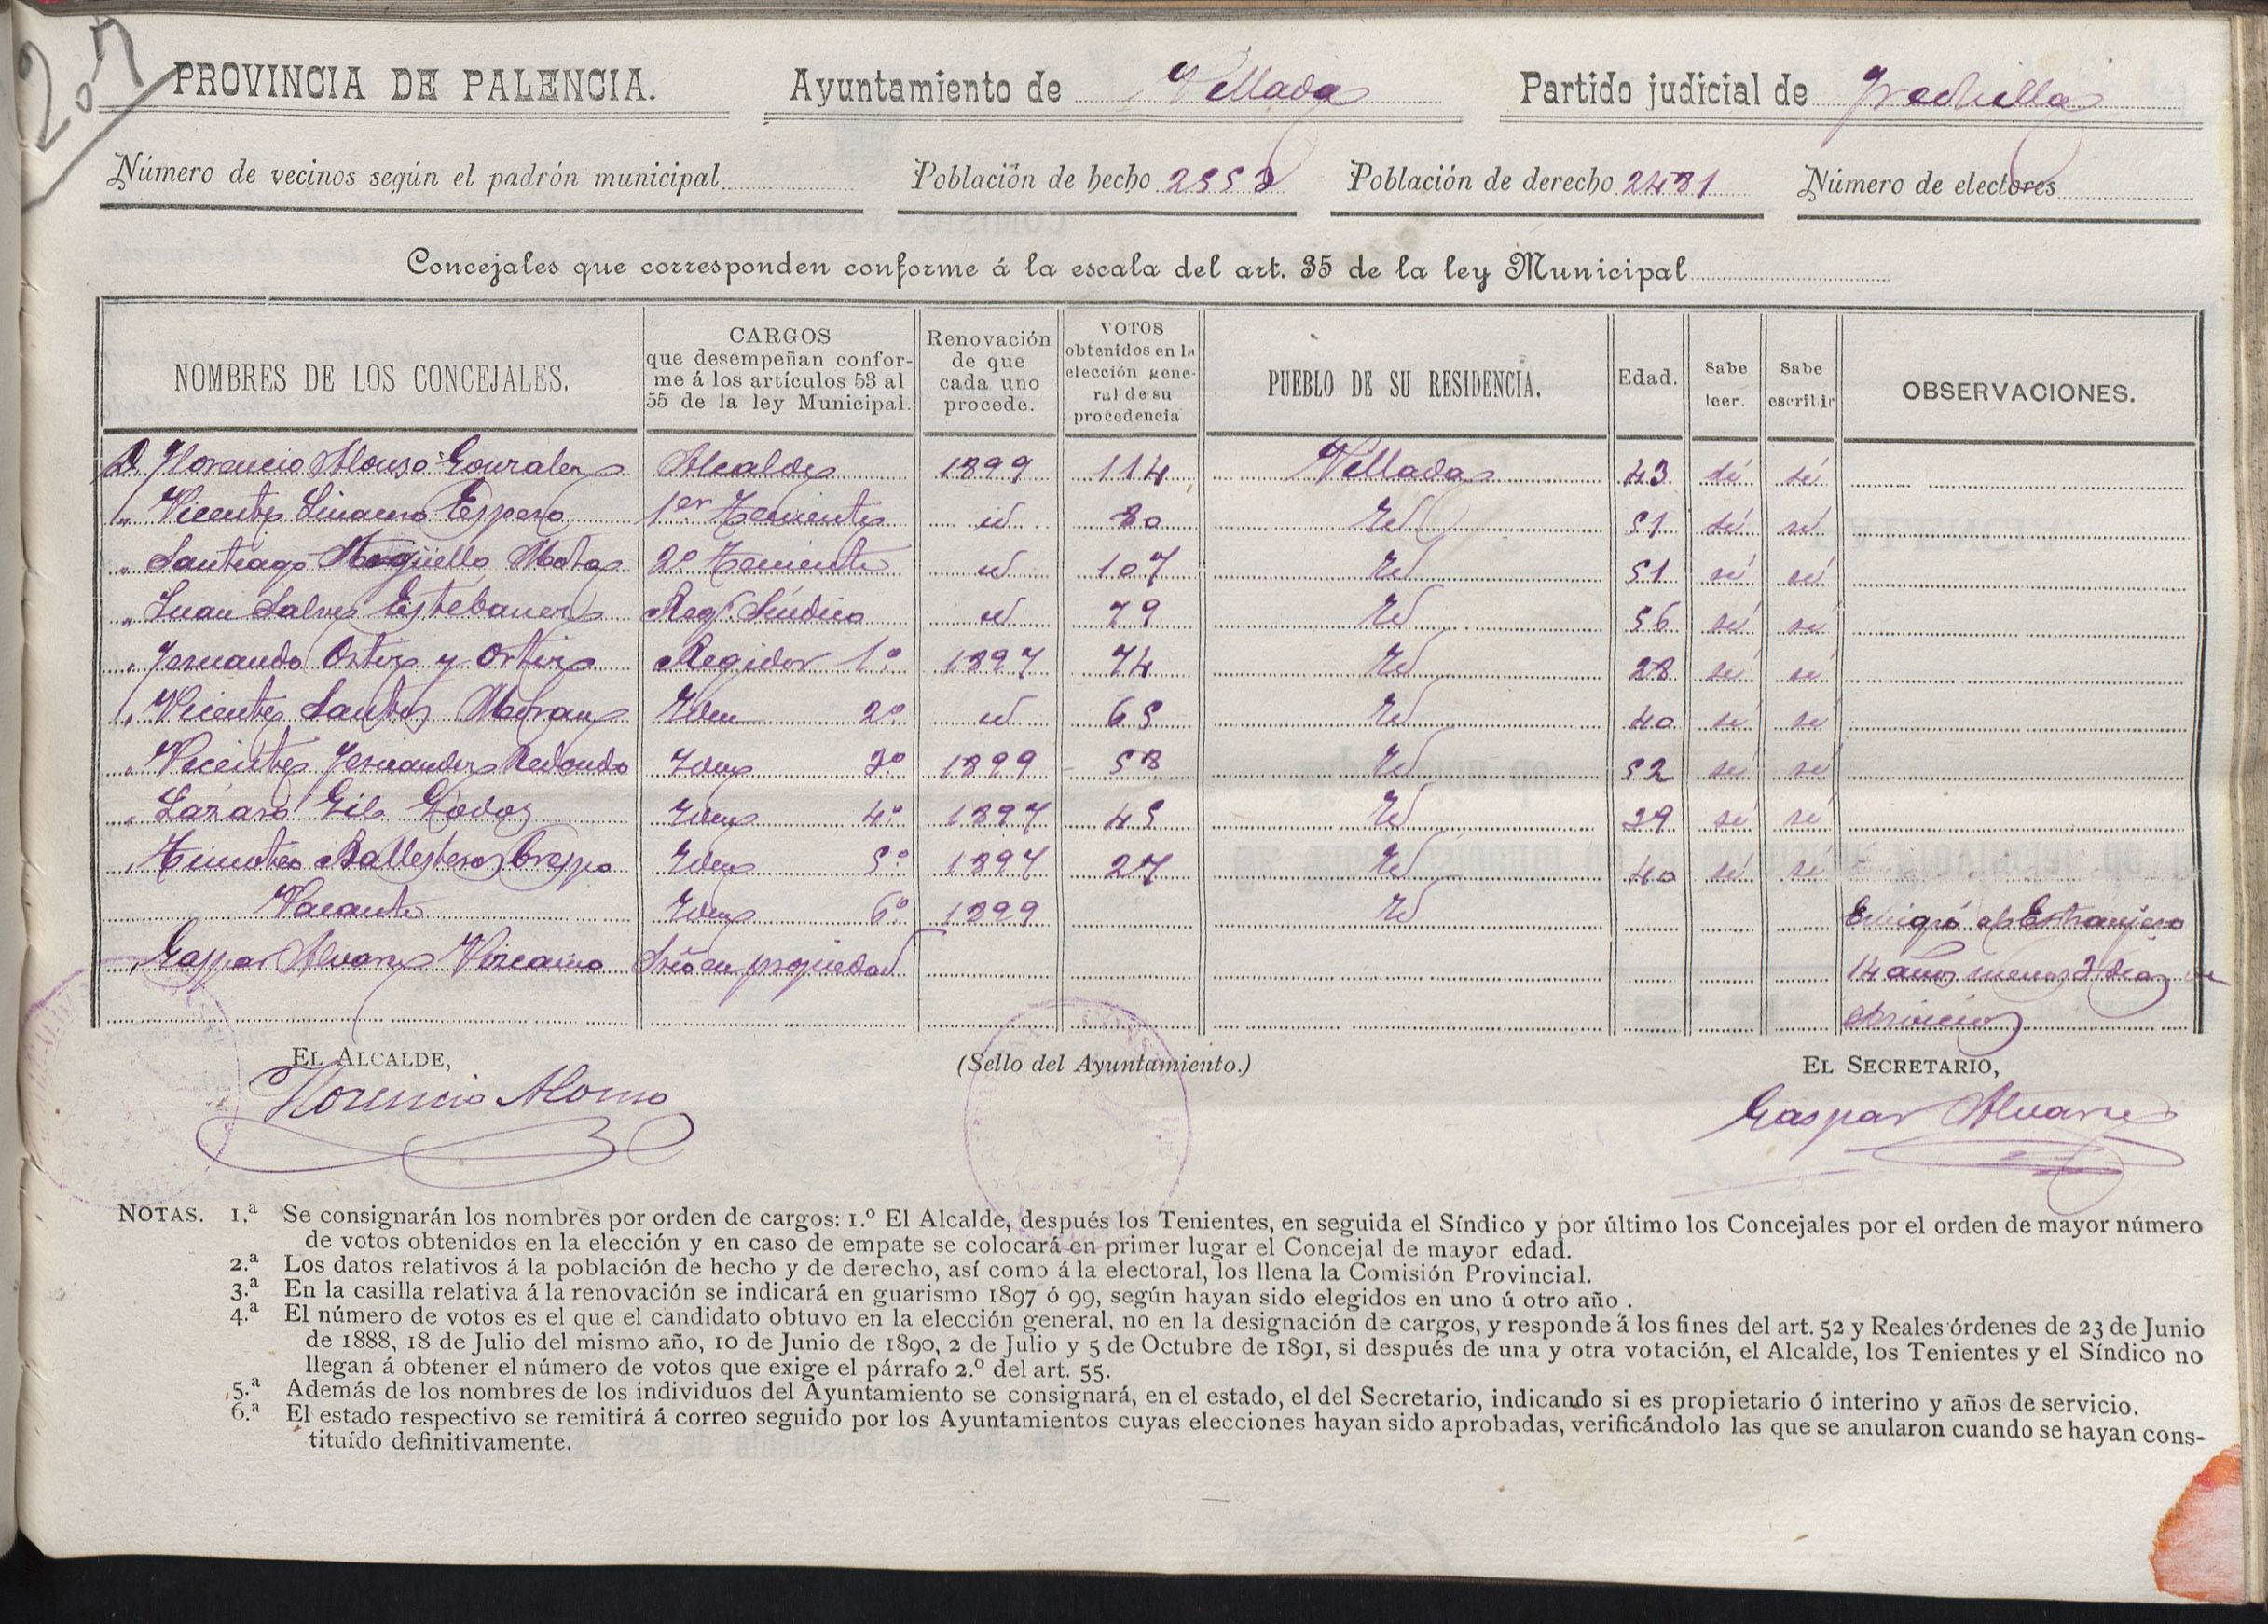 207
PROVINCIA DE PALENCIA. Ayuntamiento de Villada Partido judicial de Frechilla
Número de vecinos según el padrón municipal Población de hecho 2553 Población de derecho 2481 Número de electores
Concejales que corresponden conforme á la escala del art. 35 de la ley Municipal
NOMBRES DE LOS CONCEJALES. CARGOS que desempeñan conforme á los artículos 53 al 55 de la ley Municipal. Renovación de que cada uno procede. VOTOS obtenidos en la elección general de su procedencia PUEBLO DE SU RESIDENCIA. Edad. Sabe leer. Sabe escribir OBSERVACIONES.
D. Florencio Alonso Gonzalez Alcalde 1899 114 Villada 43 sí sí
" Vicente Espeso 1er Teniente id 80 Id 51 sí sí
" Santiago Mata 2º Teniente id 107 Id 51 sí sí
" Juan Estebanez Regr. Síndico id 79 Id 56 sí sí
" Fernando Ortiz y Ortiz Regidor 1º 1897 74 Id 28 sí sí
" Vicente Santos Moran Idem 2º id 65 Id 40 sí sí
" Vicente Fernandez Redondo Idem 3º 1899 58 Id 52 sí sí
" Lázaro Gil Godos Idem 4º 1897 45 Id 39 sí sí
" Timoteo Ballesteros Crespo Idem 5º 1897 27 Id 40 sí sí
Vacante Idem 6º 1899 Id Emigró al Estranjero
" Gaspar Alvarez Vizcaino Srio en propiedad 14 años menos 2 dias de servicios
EL ALCALDE, (Sello del Ayuntamiento.) EL SECRETARIO,
Florencio Alonso Gaspar Alvarez
NOTAS. 1.ª Se consignarán los nombres por orden de cargos: 1.º El Alcalde, después los Tenientes, en seguida el Síndico y por último los Concejales por el orden de mayor número
de votos obtenidos en la elección y en caso de empate se colocará en primer lugar el Concejal de mayor edad.
2.ª Los datos relativos á la población de hecho y de derecho, así como á la electoral, los llena la Comisión Provincial.
3.ª En la casilla relativa á la renovación se indicará en guarismo 1897 ó 99, según hayan sido elegidos en uno ú otro año.
4.ª El número de votos es el que el candidato obtuvo en la elección general, no en la designación de cargos, y responde á los fines del art. 52 y Reales órdenes de 23 de Junio
de 1888, 18 de Julio del mismo año, 10 de Junio de 1890, 2 de Julio y 5 de Octubre de 1891, si después de una y otra votación, el Alcalde, los Tenientes y el Síndico no
llegan á obtener el número de votos que exige el párrafo 2.º del art. 55.
5.ª Además de los nombres de los individuos del Ayuntamiento se consignará, en el estado, el del Secretario, indicando si es propietario ó interino y años de servicio.
6.ª El estado respectivo se remitirá á correo seguido por los Ayuntamientos cuyas elecciones hayan sido aprobadas, verificándolo las que se anularon cuando se hayan cons-
tituído definitivamente.